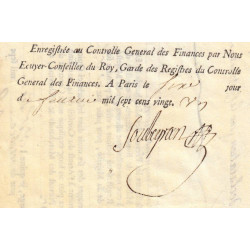 Enregistrée au Controlle General des Finances par Nous
Ecuyer-Conseiller du Roy, Garde des Registres du Controlle
General des Finances. A Paris le jour
de mil sept cens vingt